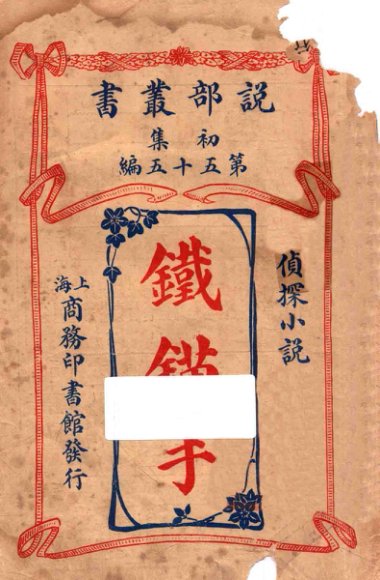 説部叢書
初集
第五十五編
偵探小説
鐵
手
上海
商務印書館發行